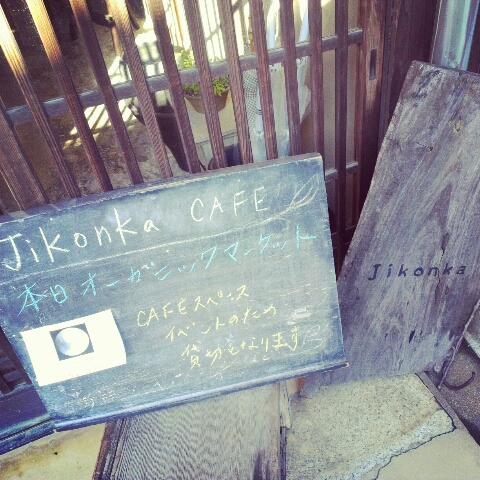 Jikonka CAFE
本日オーガニックマーケット
CAFEスペース
イベントのため
貸切となります
Jikonka